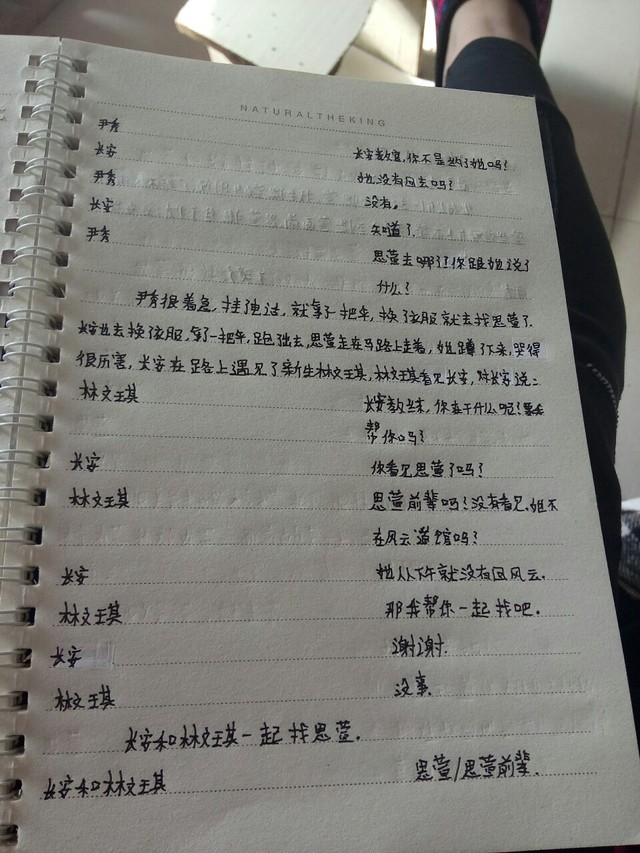 NATURALTHEKING
尹秀
长安 长安教官,你不是照了她吗?
尹秀 她没有回去吗?
长安 没有。
尹秀 知道了.
思萱去哪了?你跟她说了
什么?
尹秀很着急,挂电话,就拿了把伞,换衣服就去找思萱了.
长安也去换衣服,拿一把伞,跑出去,思萱走在马路上走着,她蹲下来,哭得
很厉害,长安在路上遇见了新生林文琪,林文琪看见长安,对长安说:
林文琪 长安教官,你在干什么呢?要我
帮你吗?
长安 你看见思萱了吗?
林文琪 思萱前辈吗?没有看见.她不
在风云道馆吗?
长安 她从下午就没有回风云.
林文琪 那我帮你一起找吧.
长安 谢谢.
林文琪 没事.
长安和林文琪一起找思萱.
长安和林文琪 思萱/思萱前辈.